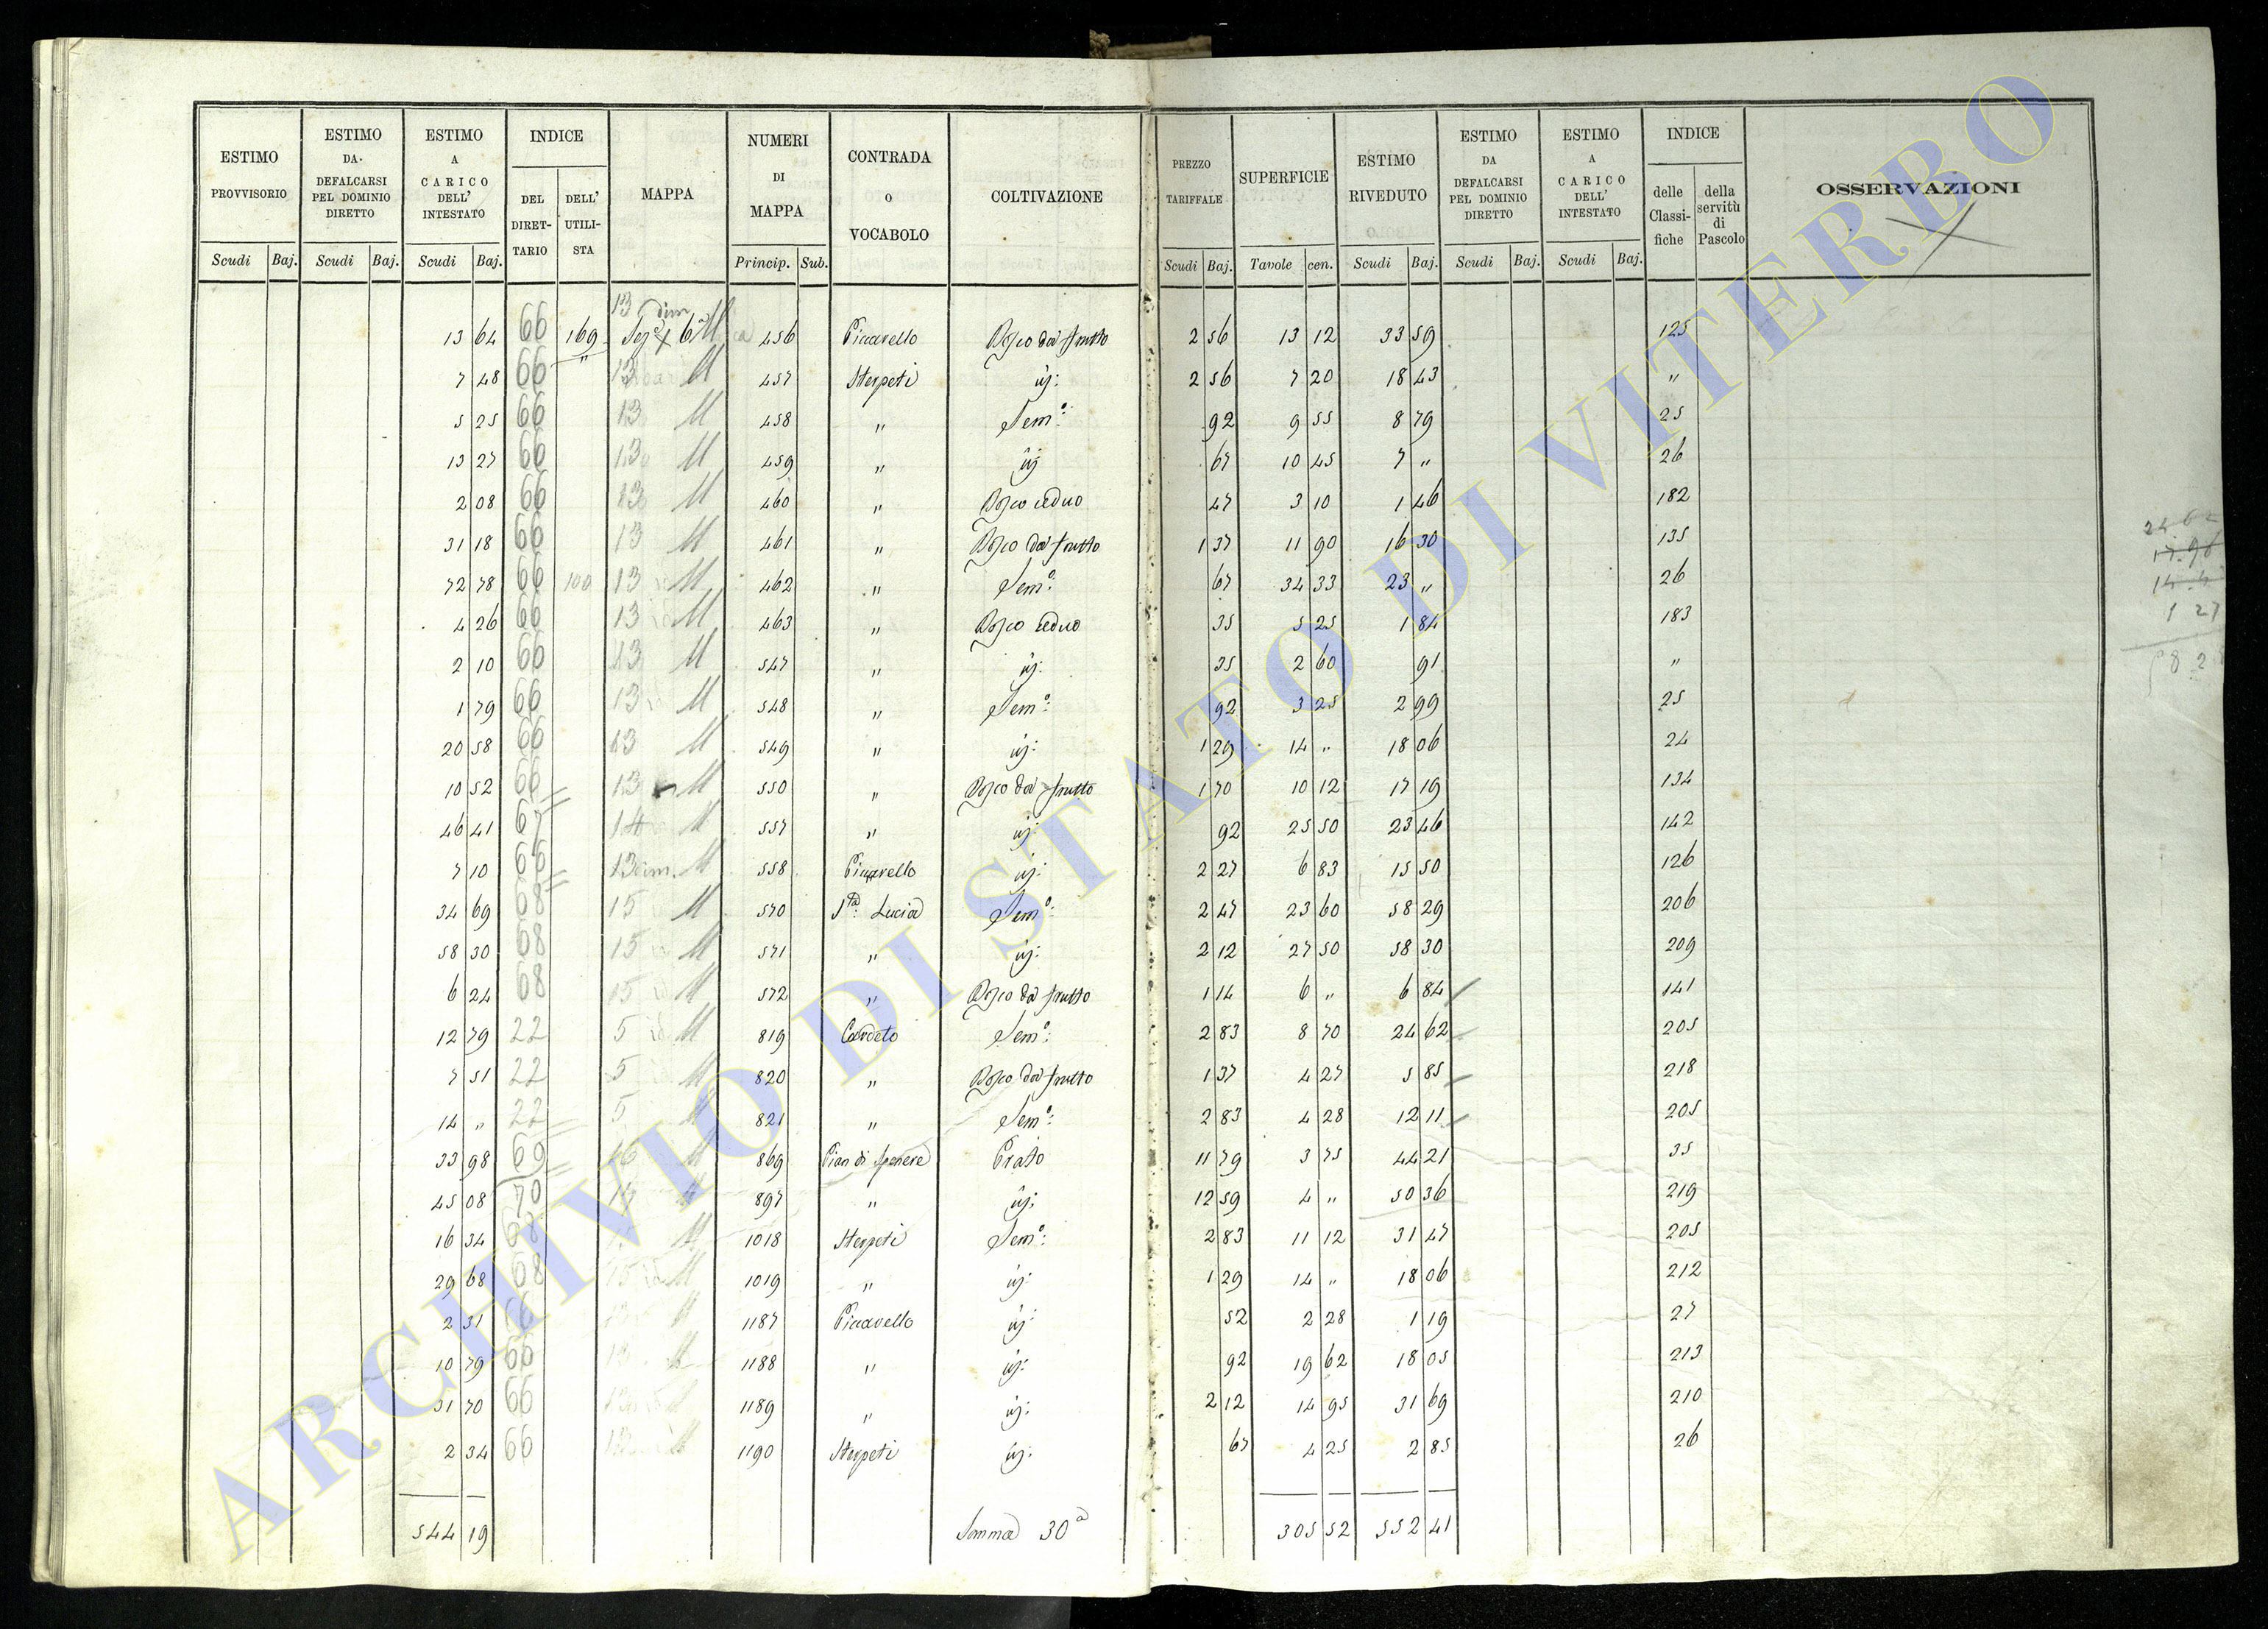 ESTIMO PROVVISORIO | ESTIMO DA DEFALCARSI PEL DOMINIO DIRETTO | ESTIMO A CARICO DELL' INTESTATO | INDICE | MAPPA | NUMERI DI MAPPA | CONTRADA o VOCABOLO | COLTIVAZIONE | PREZZO TARIFFALE | SUPERFICIE | ESTIMO RIVEDUTO | ESTIMO DA DEFALCARSI PEL DOMINIO DIRETTO | ESTIMO A CARICO DELL' INTESTATO | INDICE | OSSERVAZIONI
DEL DIRETTARIO | DELL' UTILISTA | delle Classifiche | della servitù di Pascolo
Scudi Baj. | Scudi Baj. | Scudi Baj. | Princip. Sub. | Scudi Baj. | Tavole cen. | Scudi Baj. | Scudi Baj. | Scudi Baj.
13 64 | 66 | 169 | 13 | 456 | Piccarello | Bosco da frutto | 2 56 | 13 12 | 33 59 | 125
7 48 | 66 | " | 13 M | 457 | Sterpeti | id: | 2 56 | 7 20 | 18 43 | "
5 25 | 66 | 13 M | 458 | " | Sem.o: | 92 | 9 55 | 8 79 | 25
13 27 | 66 | 13 M | 459 | " | id | 67 | 10 45 | 7 " | 26
2 08 | 66 | 13 M | 460 | " | Bosco ceduo | 47 | 3 10 | 1 46 | 182
31 18 | 66 | 13 M | 461 | " | Bosco da frutto | 1 37 | 11 90 | 16 30 | 135
72 78 | 66 | 100 | 13 M | 462 | " | Sem.o: | 67 | 34 33 | 23 " | 26
4 26 | 66 | 13 M | 463 | " | Bosco ceduo | 35 | 5 25 | 1 84 | 183
2 10 | 66 | 13 M | 547 | " | id: | 35 | 2 60 | 91 | "
1 79 | 66 | 13 M | 548 | " | Sem.o: | 92 | 3 25 | 2 99 | 25
20 58 | 66 | 13 M | 549 | " | id: | 1 29 | 14 " | 18 06 | 24
10 52 | 66 | 13 M | 550 | " | Bosco da frutto | 1 70 | 10 12 | 17 19 | 134
46 41 | 67 | 14 M | 557 | " | id: | 92 | 25 50 | 23 46 | 142
7 10 | 66 | 13 M | 558 | Piccarello | id: | 2 27 | 6 83 | 15 50 | 126
34 69 | 68 | 15 M | 570 | S.ta: Lucia | Sem.o: | 2 47 | 23 60 | 58 29 | 206
58 30 | 68 | 15 M | 571 | " | id: | 2 12 | 27 50 | 58 30 | 209
6 24 | 68 | 15 M | 572 | " | Bosco da frutto | 1 14 | 6 " | 6 84 | 141
12 79 | 22 | 5 M | 819 | Cardeto | Sem.o: | 2 83 | 8 70 | 24 62 | 205
7 51 | 22 | 5 M | 820 | " | Bosco da frutto | 1 37 | 4 27 | 5 85 | 218
14 " | 22 | 5 M | 821 | " | Sem.o: | 2 83 | 4 28 | 12 11 | 205
33 98 | 69 | 16 M | 869 | Pian di | Prato | 11 79 | 3 75 | 44 21 | 35
45 08 | 70 | 897 | " | id: | 12 59 | 4 " | 50 36 | 219
16 34 | 68 | M | 1018 | Sterpeti | Sem.o: | 2 83 | 11 12 | 31 47 | 205
29 68 | 68 | 15 M | 1019 | " | id: | 1 29 | 14 " | 18 06 | 212
2 31 | 66 | 1187 | Piccarello | id: | 52 | 2 28 | 1 19 | 27
10 79 | 66 | 13 | 1188 | " | id: | 92 | 19 62 | 18 05 | 213
31 70 | 66 | 13 | 1189 | " | id: | 2 12 | 14 95 | 31 69 | 210
2 34 | 66 | 1190 | Sterpeti | id: | 67 | 4 25 | 2 85 | 26
544 19 | Somma 30a | 305 52 | 552 41
1 27
ARCHIVIO DI STATO DI VITERBO